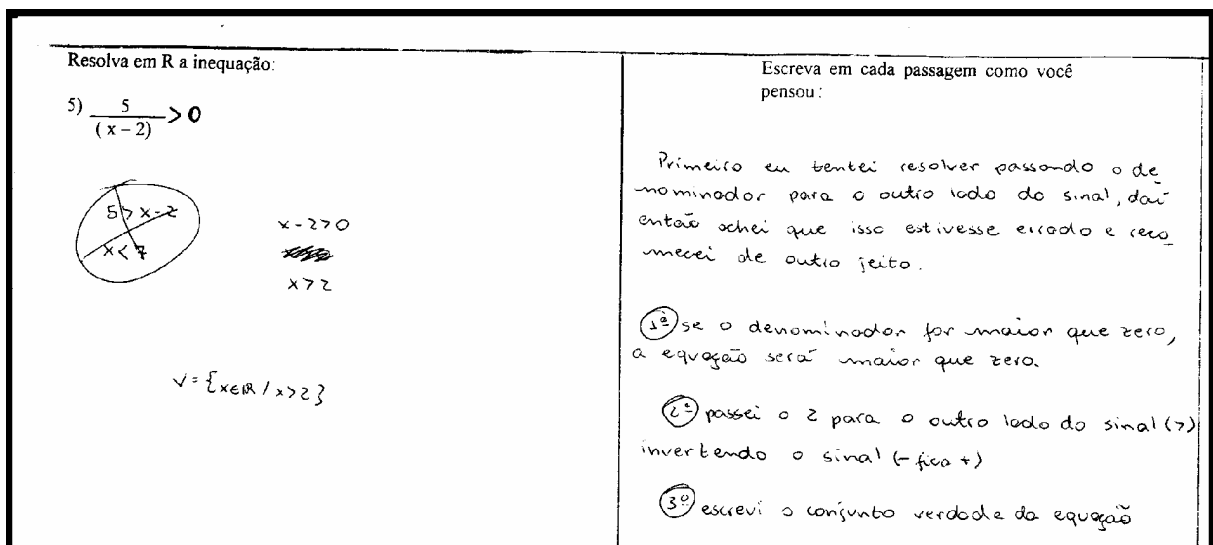 Resolva em R a inequação:
5) 5 / (x – 2) > 0
5 > x-2
x < 7
x-2>0
x>2
V = {x∈R / x>2}
Escreva em cada passagem como você
pensou:
Primeiro eu tentei resolver passando o de
nominador para o outro lado do sinal, daí
então achei que isso estivesse errado e reco
mecei de outro jeito.
1º se o denominador for maior que zero,
a equação será maior que zero.
2º passei o 2 para o outro lado do sinal (>)
invertendo o sinal (- fica +)
3º escrevi o conjunto verdade da equação